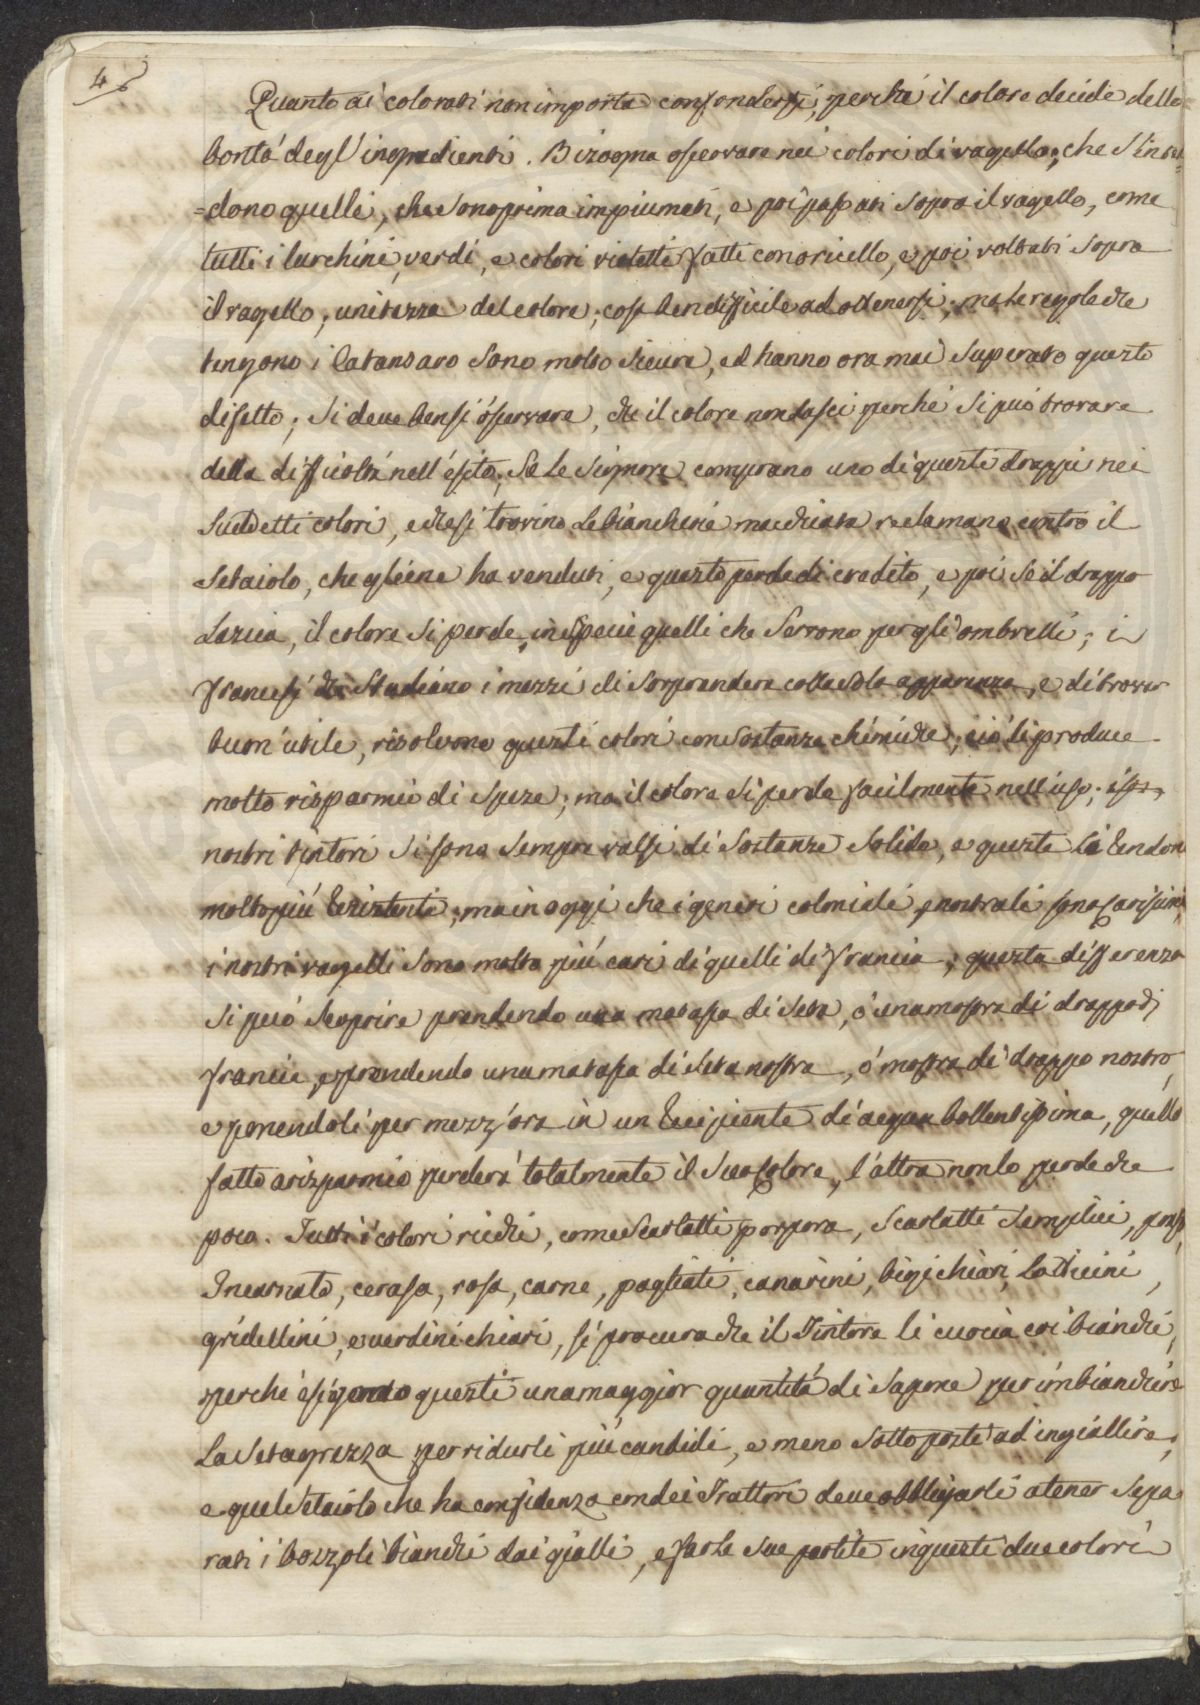 4
Quanto ai colorati non importa confondersi, perché il colore decide della
bontà degl'ingredienti. Bizogna osservare nei colori di vagello, che s'inten=
=dono quelli, che sono prima impiumati, e poi passati sopra il vagello, come
tutti i turchini, verdi, e colori violetti fatti con oricello, e poi voltati sopra
il vagello, unitezza del colore, cosa ben difficile ad ottenersi; ma le regole che
tengono i Catanzaro sono molto sicure, ed hanno ora mai superato questo
difetto; si deve bensi osservare, che il colore non lasci perché si può trovare
della difficoltà nell'esito. Se le Signore comprano uno di questi drappi nei
suddetti colori, e che si trovino le biancherie macchiate reclamano contro il
Setaiolo, che gliene ha venduti, e questo perde di credito, e poi se il drappo
Lascia, il colore si perde, in specie quelli che servono per gli ombrelli; i
francesi che studiano i mezzi di sorprendere colla sola apparenza, e di trovar
buon'utile, risolvono questi colori con sostanze chimiche, ciò li produce
molto risparmio di speze; ma il colore si perde facilmente nell'uso;
nostri tintori si sono sempre valsi di sostanze solide, e queste li rendono
molto più resistenti, ma in oggi che i generi coloniali, e nostrali sono carissimi
i nostri vagelli sono molto più cari di quelli di francia; questa differenza
si può scoprire prendendo una matassa di seta, ò una mostra di drappo di
francia, e prendendo una matassa di seta nostra, ó mostra di drappo nostro,
e ponendoli per mezz'ora in un recipiente di acqua bollentissima, quello
fatto a risparmio perderà totalmente il suo colore, l'altro non lo perde che
poco. Tutti i colori ricchi, come Scarlatti porpora, Scarlatti semplici,
Incarnato, cerasa, rosa, carne, pagliati, canarini, bigi chiari, Latticini,
gridellini, e verdini chiari, si procura che il Tintore li cuocia coi bianchi,
perché esigendo questi una maggior quantità di sapone per imbianchire
La seta grezza per ridurli più candidi, e meno sottoposti ad ingiallire,
e quel Setaiolo che ha confidenza con dei Trattori deve obbligarli a tener sepa
rati i bozzoli bianchi dai gialli, e far le sue partite in questi due colori